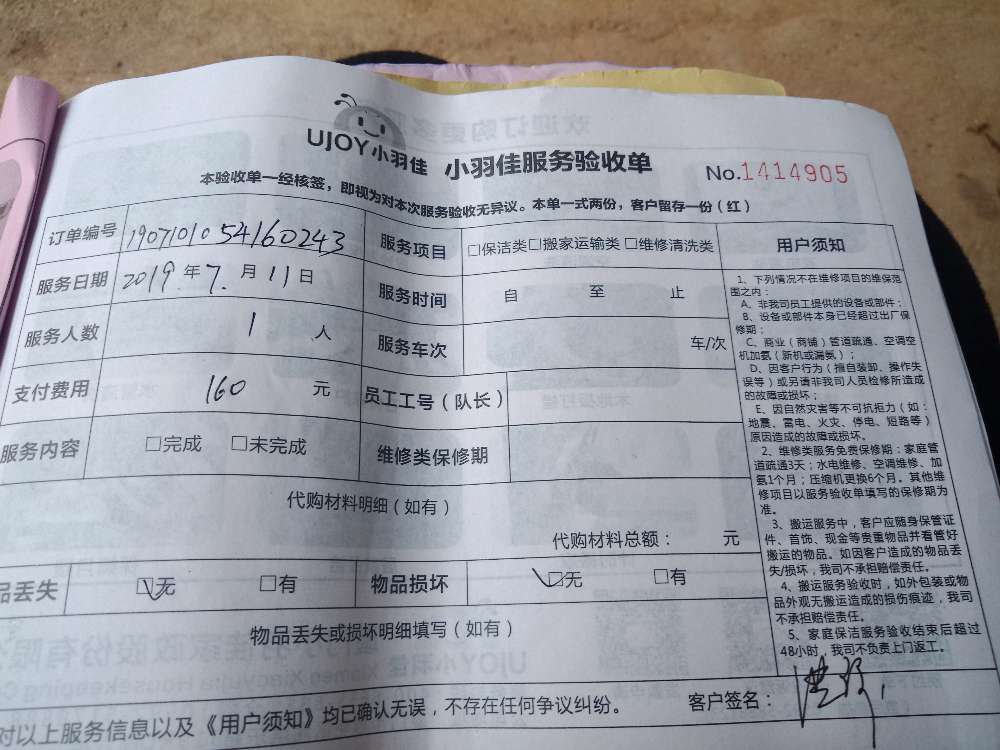 UJOY小羽佳 小羽佳服务验收单 No.1414905
本验收单一经核签，即视为对本次服务验收无异议。本单一式两份，客户留存一份（红）
订单编号 1907101054160243 服务项目 □保洁类□搬家运输类 □维修清洗类
服务日期 2019年7.月11日 服务时间 自 至 止
服务人数 1人 服务车次 车/次
支付费用 160元 员工工号（队长）
服务内容 □完成 □未完成 维修类保修期
代购材料明细（如有）
代购材料总额： 元
品丢失 □无 □有 物品损坏 □无 □有
物品丢失或损坏明细填写（如有）
对以上服务信息以及《用户须知》均已确认无误，不存在任何争议纠纷。 客户签名：
用户须知
1、下列情况不在维修项目的维保范
围之内：
A、非我司员工提供的设备或部件；
B、设备或部件本身已经超过出厂保
修期；
C、商业（商铺）管道疏通、空调空
机加氨（新机或漏氨）；
D、因客户行为（擅自装卸、操作失
误等）或另请非我司人员检修所造成
的故障或损坏；
E、因自然灾害等不可抗拒力（如：
地震、雷电、火灾、停电、短路等）
原因造成的故障或损坏。
2、维修类服务免费保修期：家庭管
道疏通3天；水电维修、空调维修、加
氨1个月；压缩机更换6个月。其他维
修项目以服务验收单填写的保修期为
准。
3、搬运服务中，客户应随身保管证
件、首饰、现金等贵重物品并看管好
搬运的物品。如因客户造成的物品丢
失/损坏，我司不承担赔偿责任。
4、搬运服务验收时，如外包装或物
品外观无搬运造成的损伤痕迹，我司
不承担赔偿责任。
5、家庭保洁服务验收结束后超过
48小时，我司不负责上门返工。